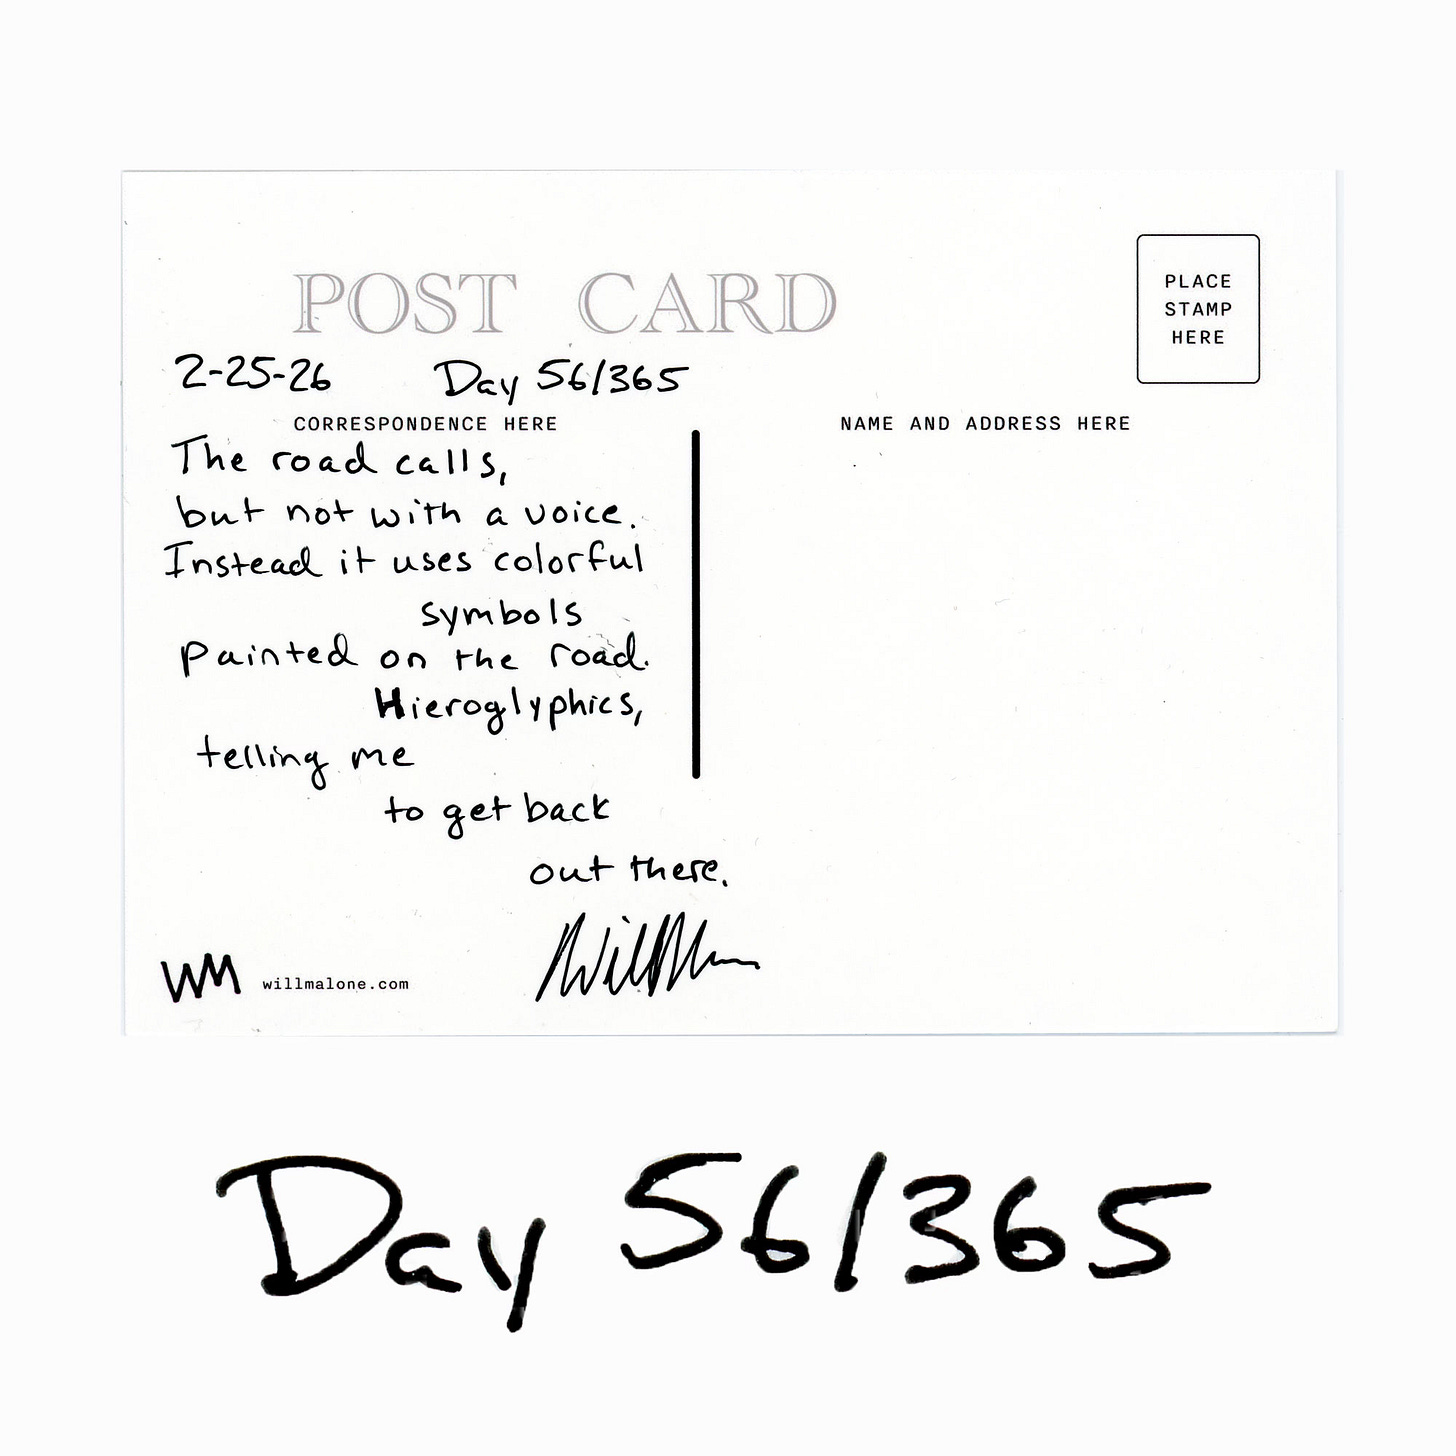 POST CARD
PLACE
STAMP
HERE
2-25-26 Day 56/365
CORRESPONDENCE HERE
NAME AND ADDRESS HERE
The road calls,
but not with a voice.
Instead it uses colorful
symbols
painted on the road.
Hieroglyphics,
telling me
to get back
out there.
Will M
WM willmalone.com
Day 56/365